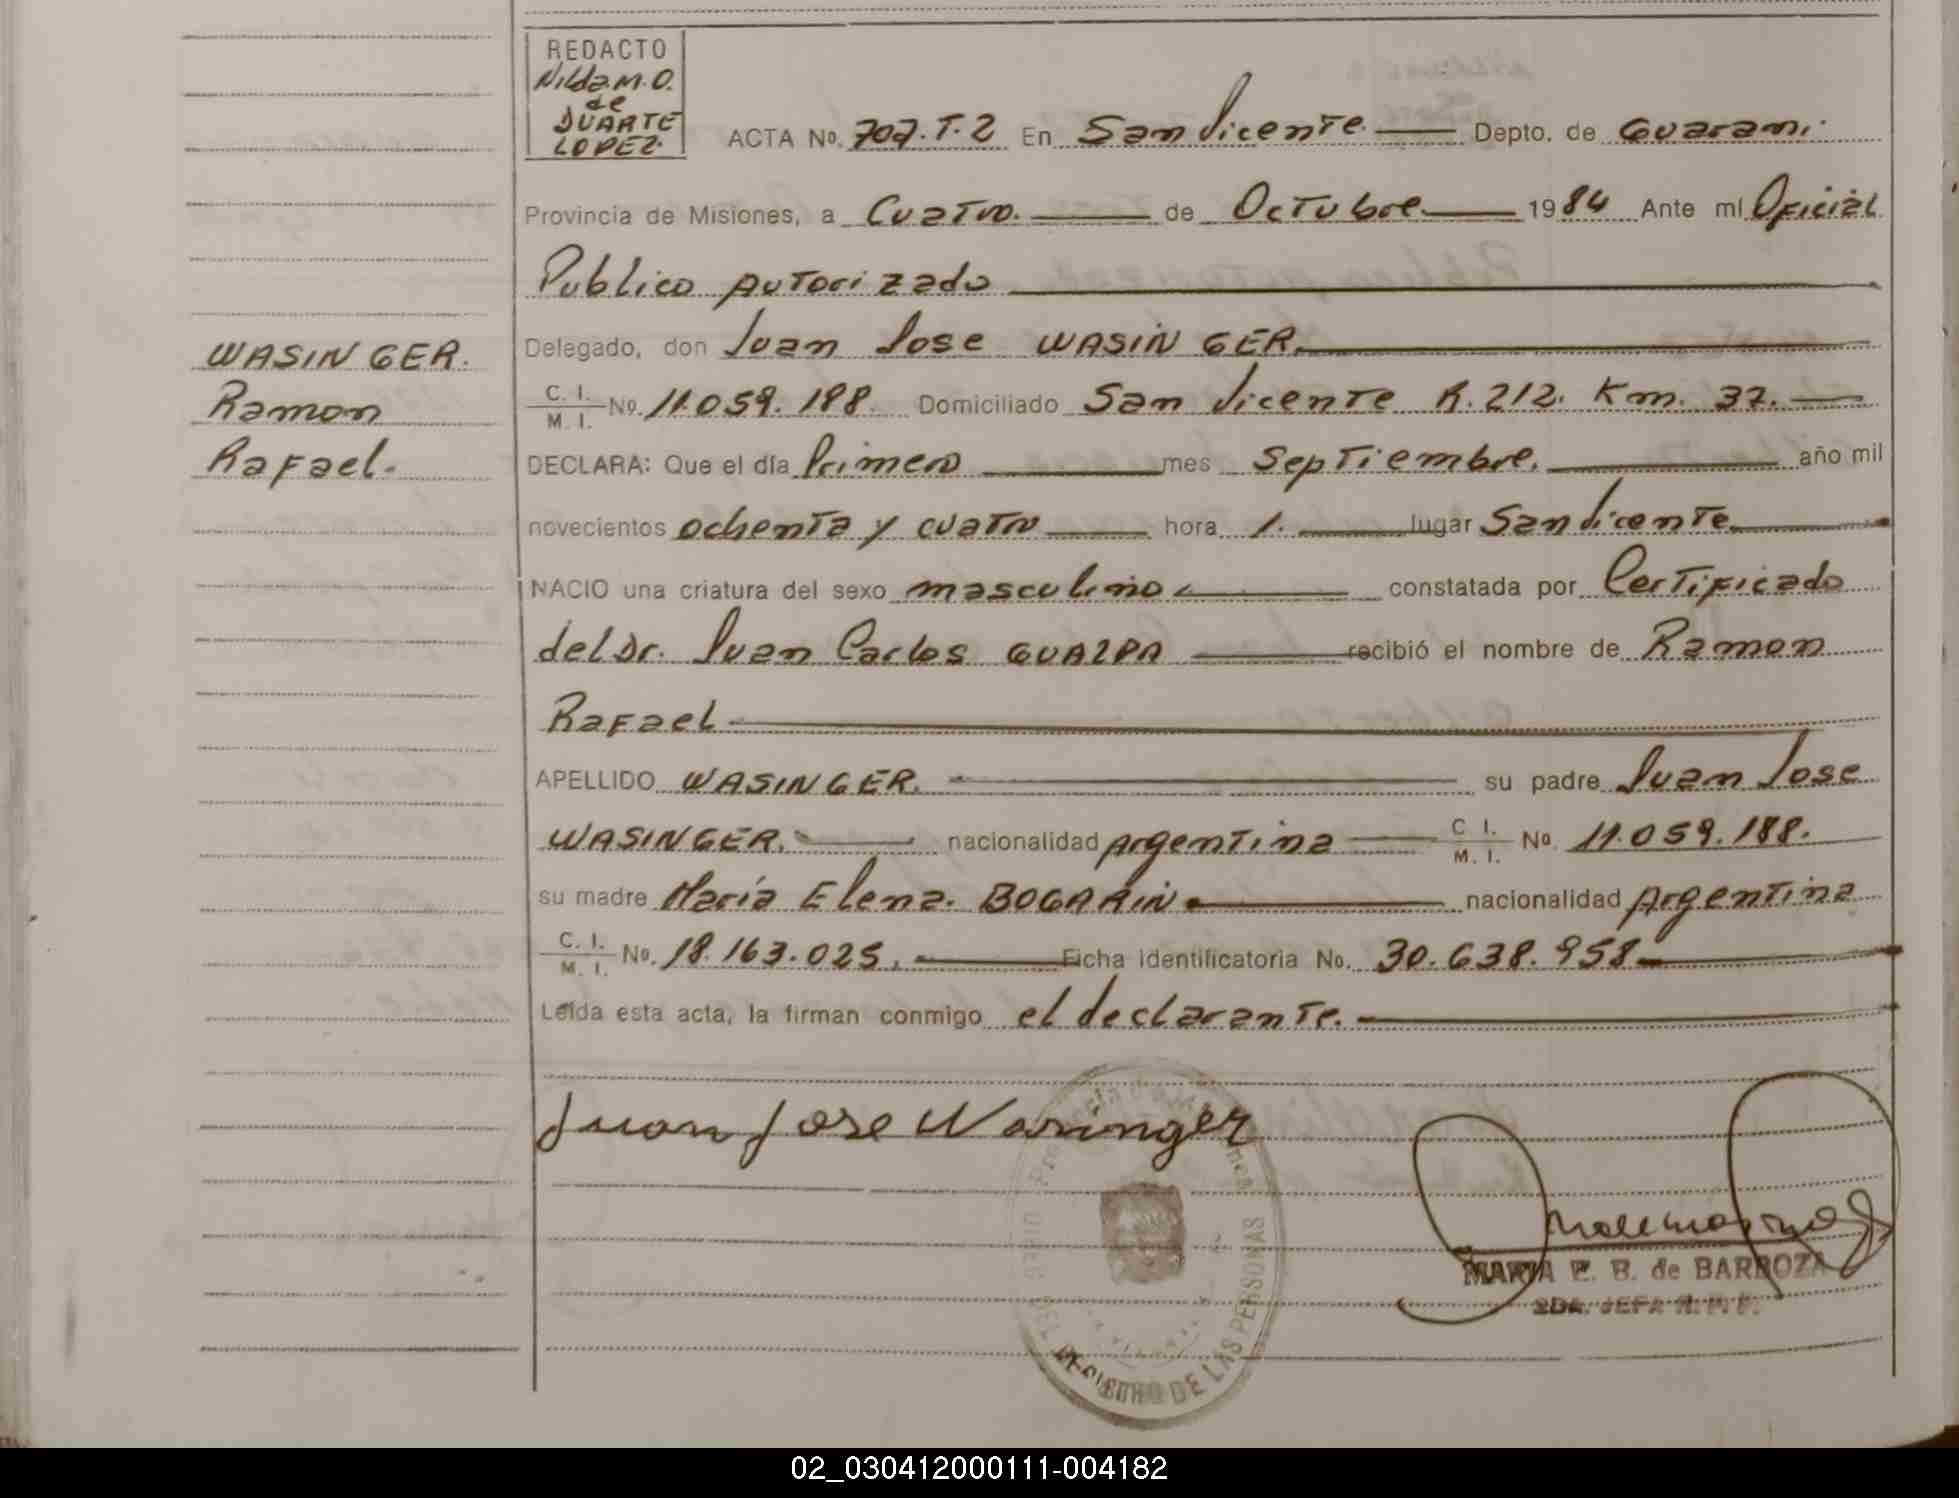 REDACTO
Nilda M. O.
de
DUARTE
LOPEZ.
ACTA No. 707. T. 2 En San Vicente. Depto. de Guarani.
Provincia de Misiones, a Cuatro. de Octubre 1984 Ante mí Oficial
Publico Autorizado
Delegado, don Juan Jose WASINGER.
C. I.
M. I. No. 11.059.188. Domiciliado San Vicente R. 212. Km. 37.
DECLARA: Que el día Primero mes Septiembre. año mil
novecientos ochenta y cuatro hora 1. lugar San Vicente
NACIO una criatura del sexo masculino constatada por Certificado
del Dr. Juan Carlos GUAZPA recibió el nombre de Ramon
Rafael
APELLIDO WASINGER. su padre Juan Jose
WASINGER. nacionalidad Argentina C I.
M. I. No. 11.059.188.
su madre María Elena. BOGARIN nacionalidad Argentina
C. I.
M. I. No. 18.163.025. Ficha Identificatoria No. 30.638.958
Leída esta acta, la firman conmigo el declarante.
WASINGER.
Ramon
Rafael.
Juan Jose Wasinger
MARIA E. B. de BARBOZA
2DA. JEFA R. P. P.
REGISTRO DE LAS PERSONAS
02_030412000111-004182